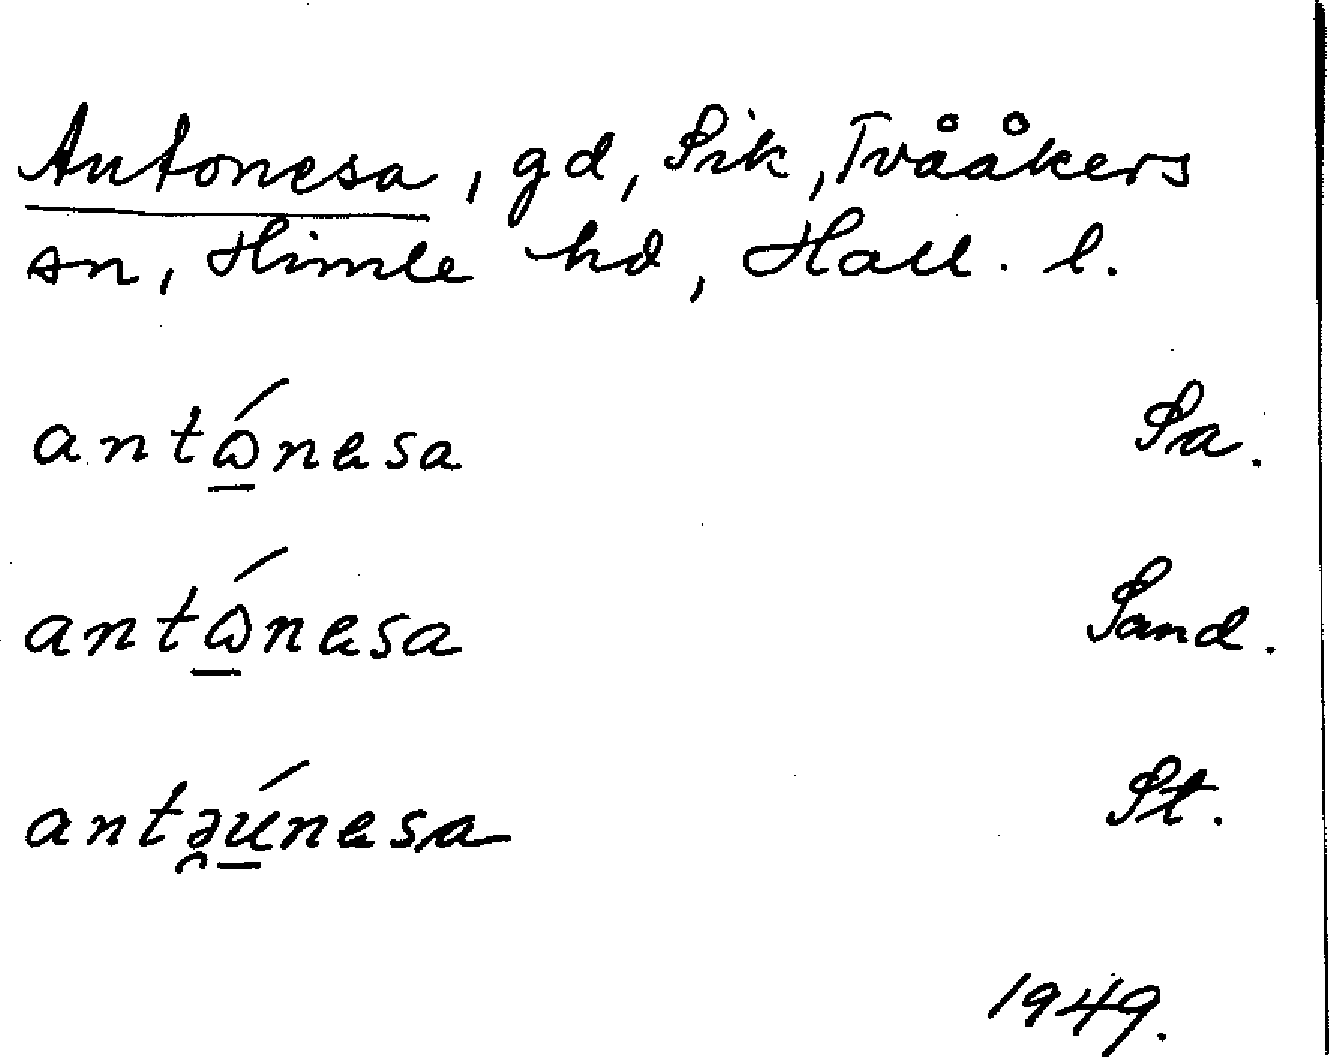 Antonesa, gd, Sik, Tvååkers
sn, Himle hd, Hall. l.
antώ̲nesa Sa.
antώ̲nesa Sand.
antə̯ú̲nesa St.
1949.